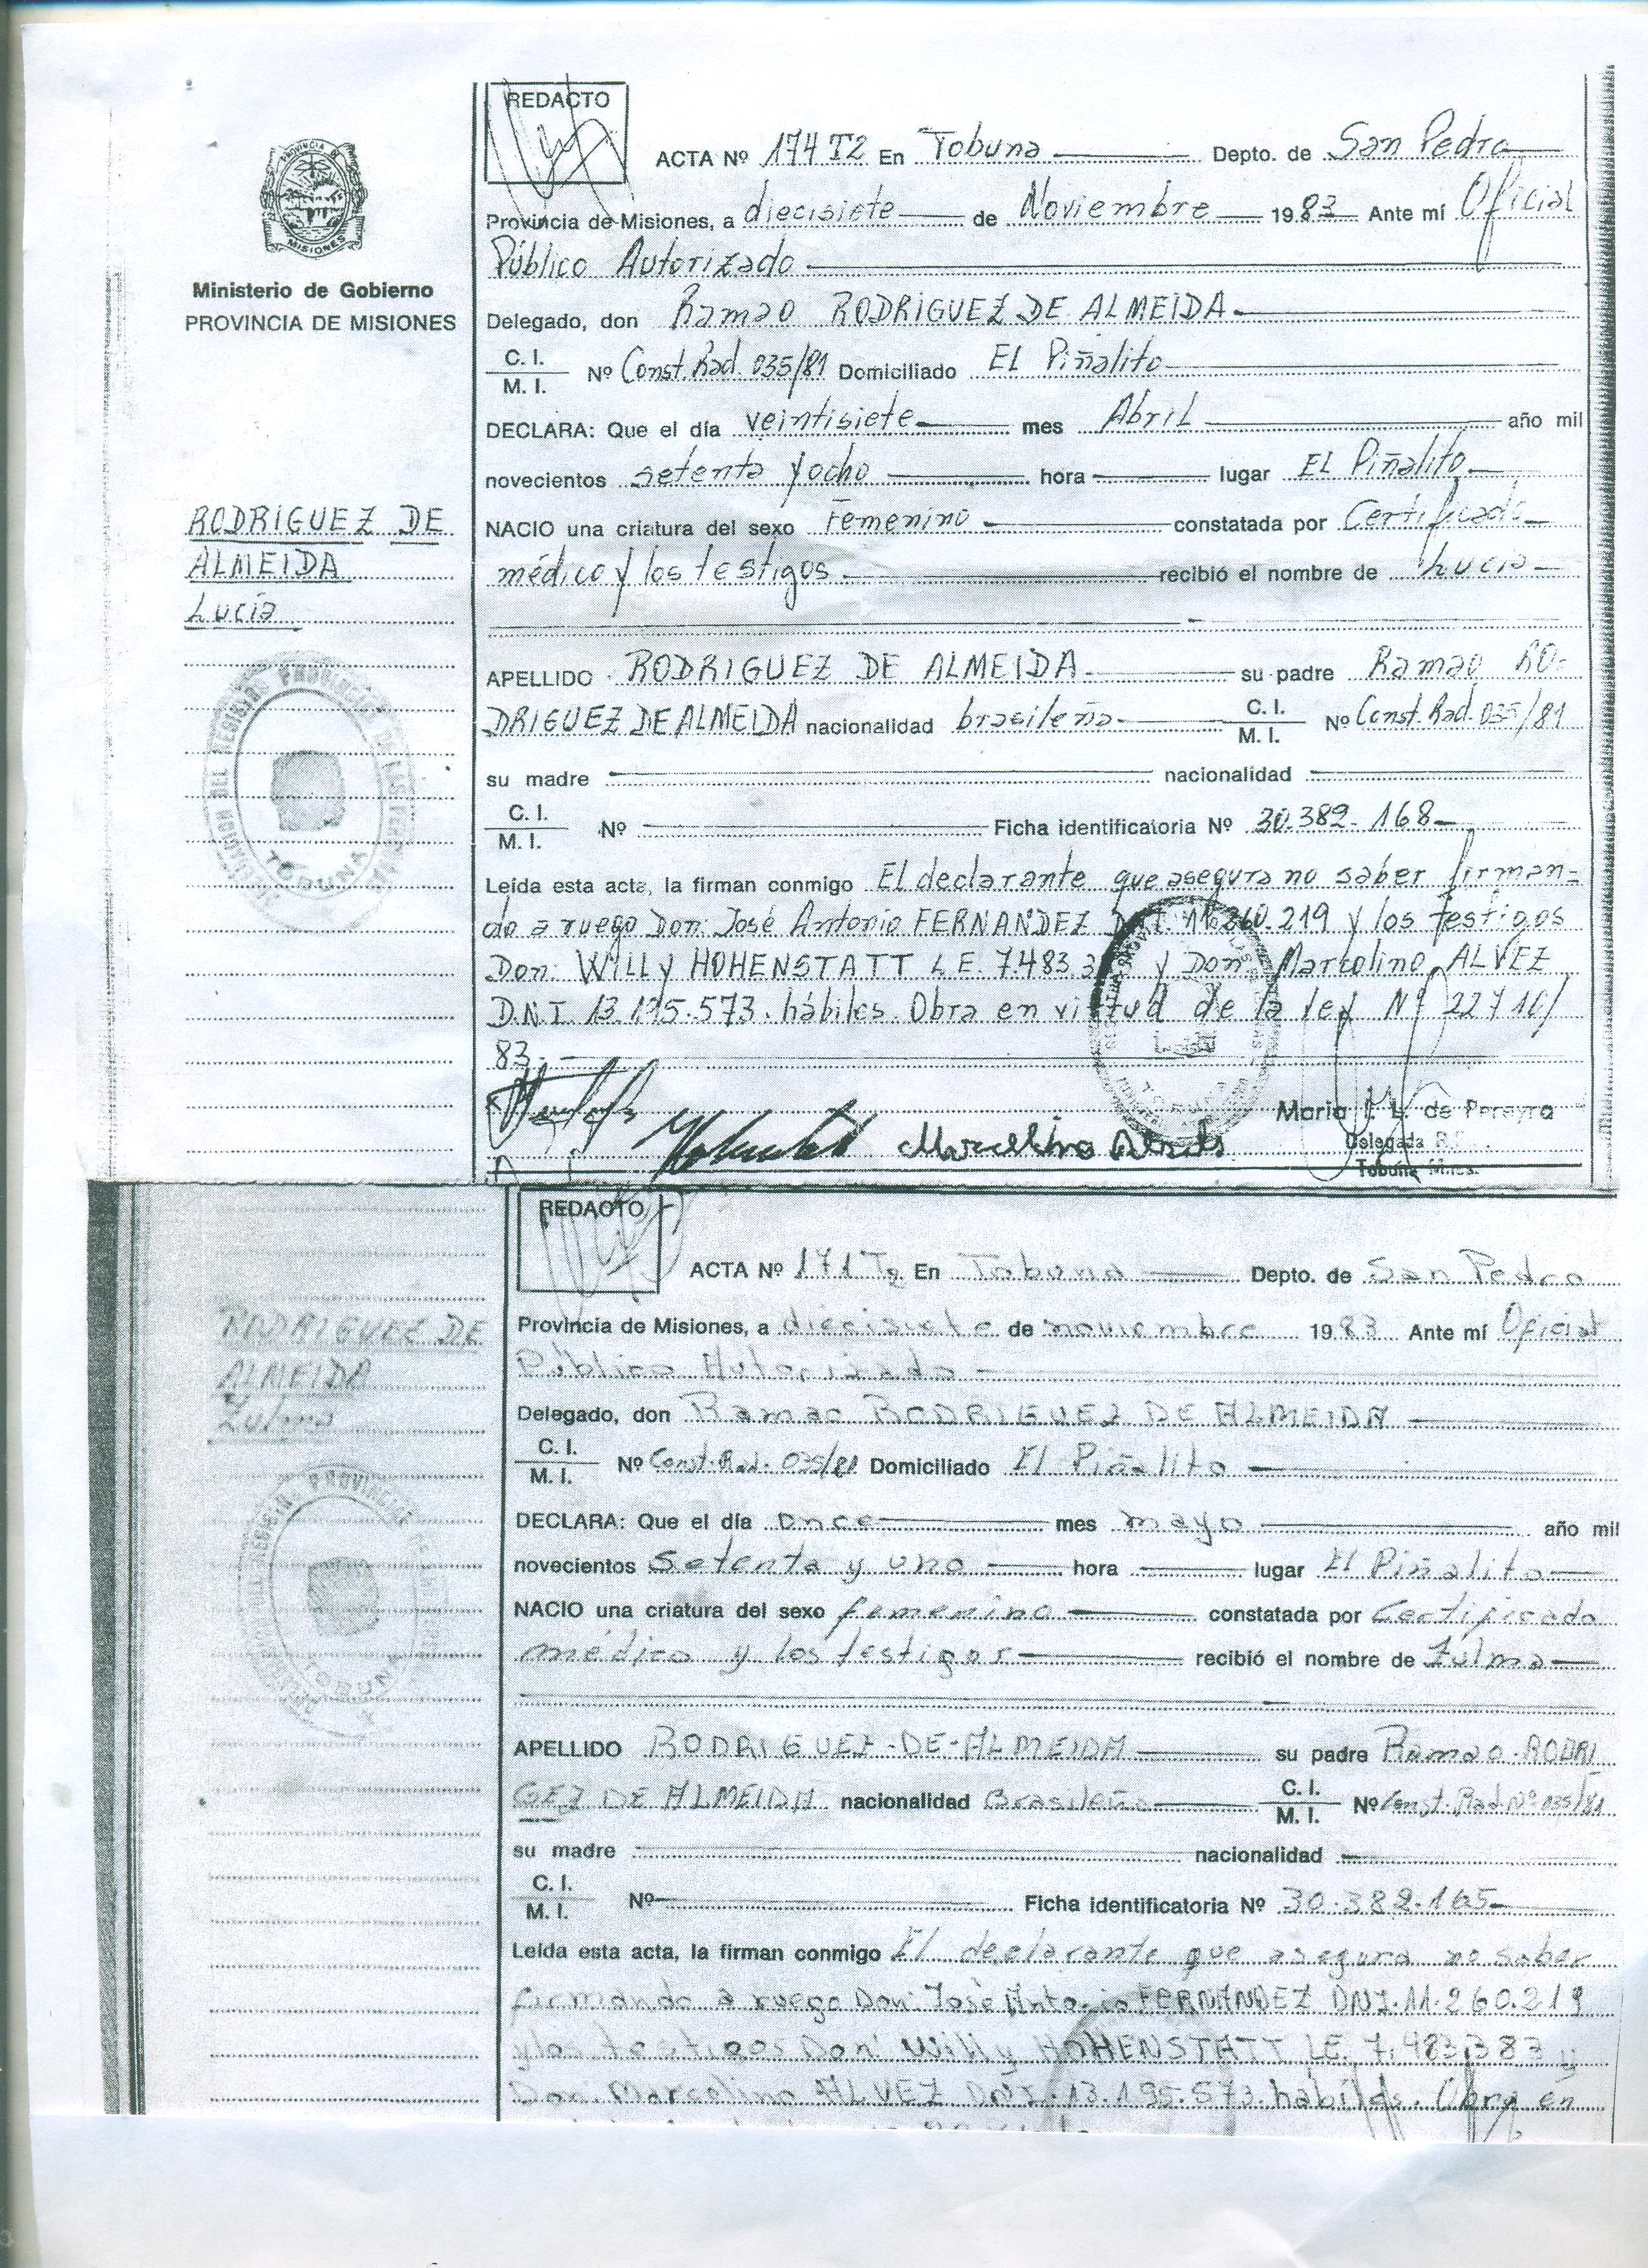 REDACTO
ACTA Nº 174 T2 En Tobuna Depto. de San Pedro
PROVINCIA DE
MISIONES
Provincia de Misiones, a diecisiete de Noviembre 1983 Ante mí Oficial
Público Autorizado
Ministerio de Gobierno
PROVINCIA DE MISIONES
Delegado, don Ramao RODRIGUEZ DE ALMEIDA
C. I.
M. I. Nº Const. Rad. 035/81 Domiciliado EL Piñalito
DECLARA: Que el día veintisiete mes Abril año mil
novecientos setenta y ocho hora lugar EL Piñalito
RODRIGUEZ DE
ALMEIDA
Lucía
NACIO una criatura del sexo Femenino constatada por Certificado
médico y los testigos. recibió el nombre de Lucia
APELLIDO RODRIGUEZ DE ALMEIDA su padre Ramao RO-
DRIGUEZ DE ALMEIDA nacionalidad brasileña C. I.
M. I. Nº Const. Rad. 035/81
su madre nacionalidad
C. I.
M. I. Nº Ficha identificatoria Nº 30.382.168
TOBUNA
Leída esta acta, la firman conmigo El declarante que asegura no saber firman-
do a ruego Don: José Antonio FERNANDEZ D.N.I. 11.260.219 y los testigos
Don: WILLY HOHENSTATT L.E. 7.483.3 y Don Marcolino ALVEZ
D.N.I. 13.195.573. hábiles. Obra en virtud de la ley Nº 22710/
83.
Maria de Pereyra
Delegada
Tobuna Mnes.
REDACTO
ACTA Nº 171 T2 En Tobuna Depto. de San Pedro
Provincia de Misiones, a diecisiete de noviembre 1983 Ante mí Oficial
Público Autorizado
RODRIGUEZ DE
ALMEIDA
Zulma
Delegado, don Ramao RODRIGUEZ DE ALMEIDA
C. I.
M. I. Nº Const. Rad. 035/81 Domiciliado El Piñalito
DECLARA: Que el día once mes mayo año mil
novecientos setenta y uno hora lugar El Piñalito
NACIO una criatura del sexo femenino constatada por Certificado
médico y los testigos recibió el nombre de Zulma
TOBUNA
APELLIDO RODRIGUEZ-DE-ALMEIDA su padre Ramao RODRI
GEZ DE ALMEIDA nacionalidad Brasileño C. I.
M. I. Nº Const. Rad. Nº 035/81
su madre nacionalidad
C. I.
M. I. Nº Ficha identificatoria Nº 30.382.165
Leída esta acta, la firman conmigo El declarante que asegura no saber
firmando a ruego Don: José Antonio FERNANDEZ DNI. 11.260.219
y los testigos Don: Willy HOHENSTATT LE. 7.483.383 y
Don. Marcolino ALVEZ DNI. 13.195.573. hábiles. Obra en